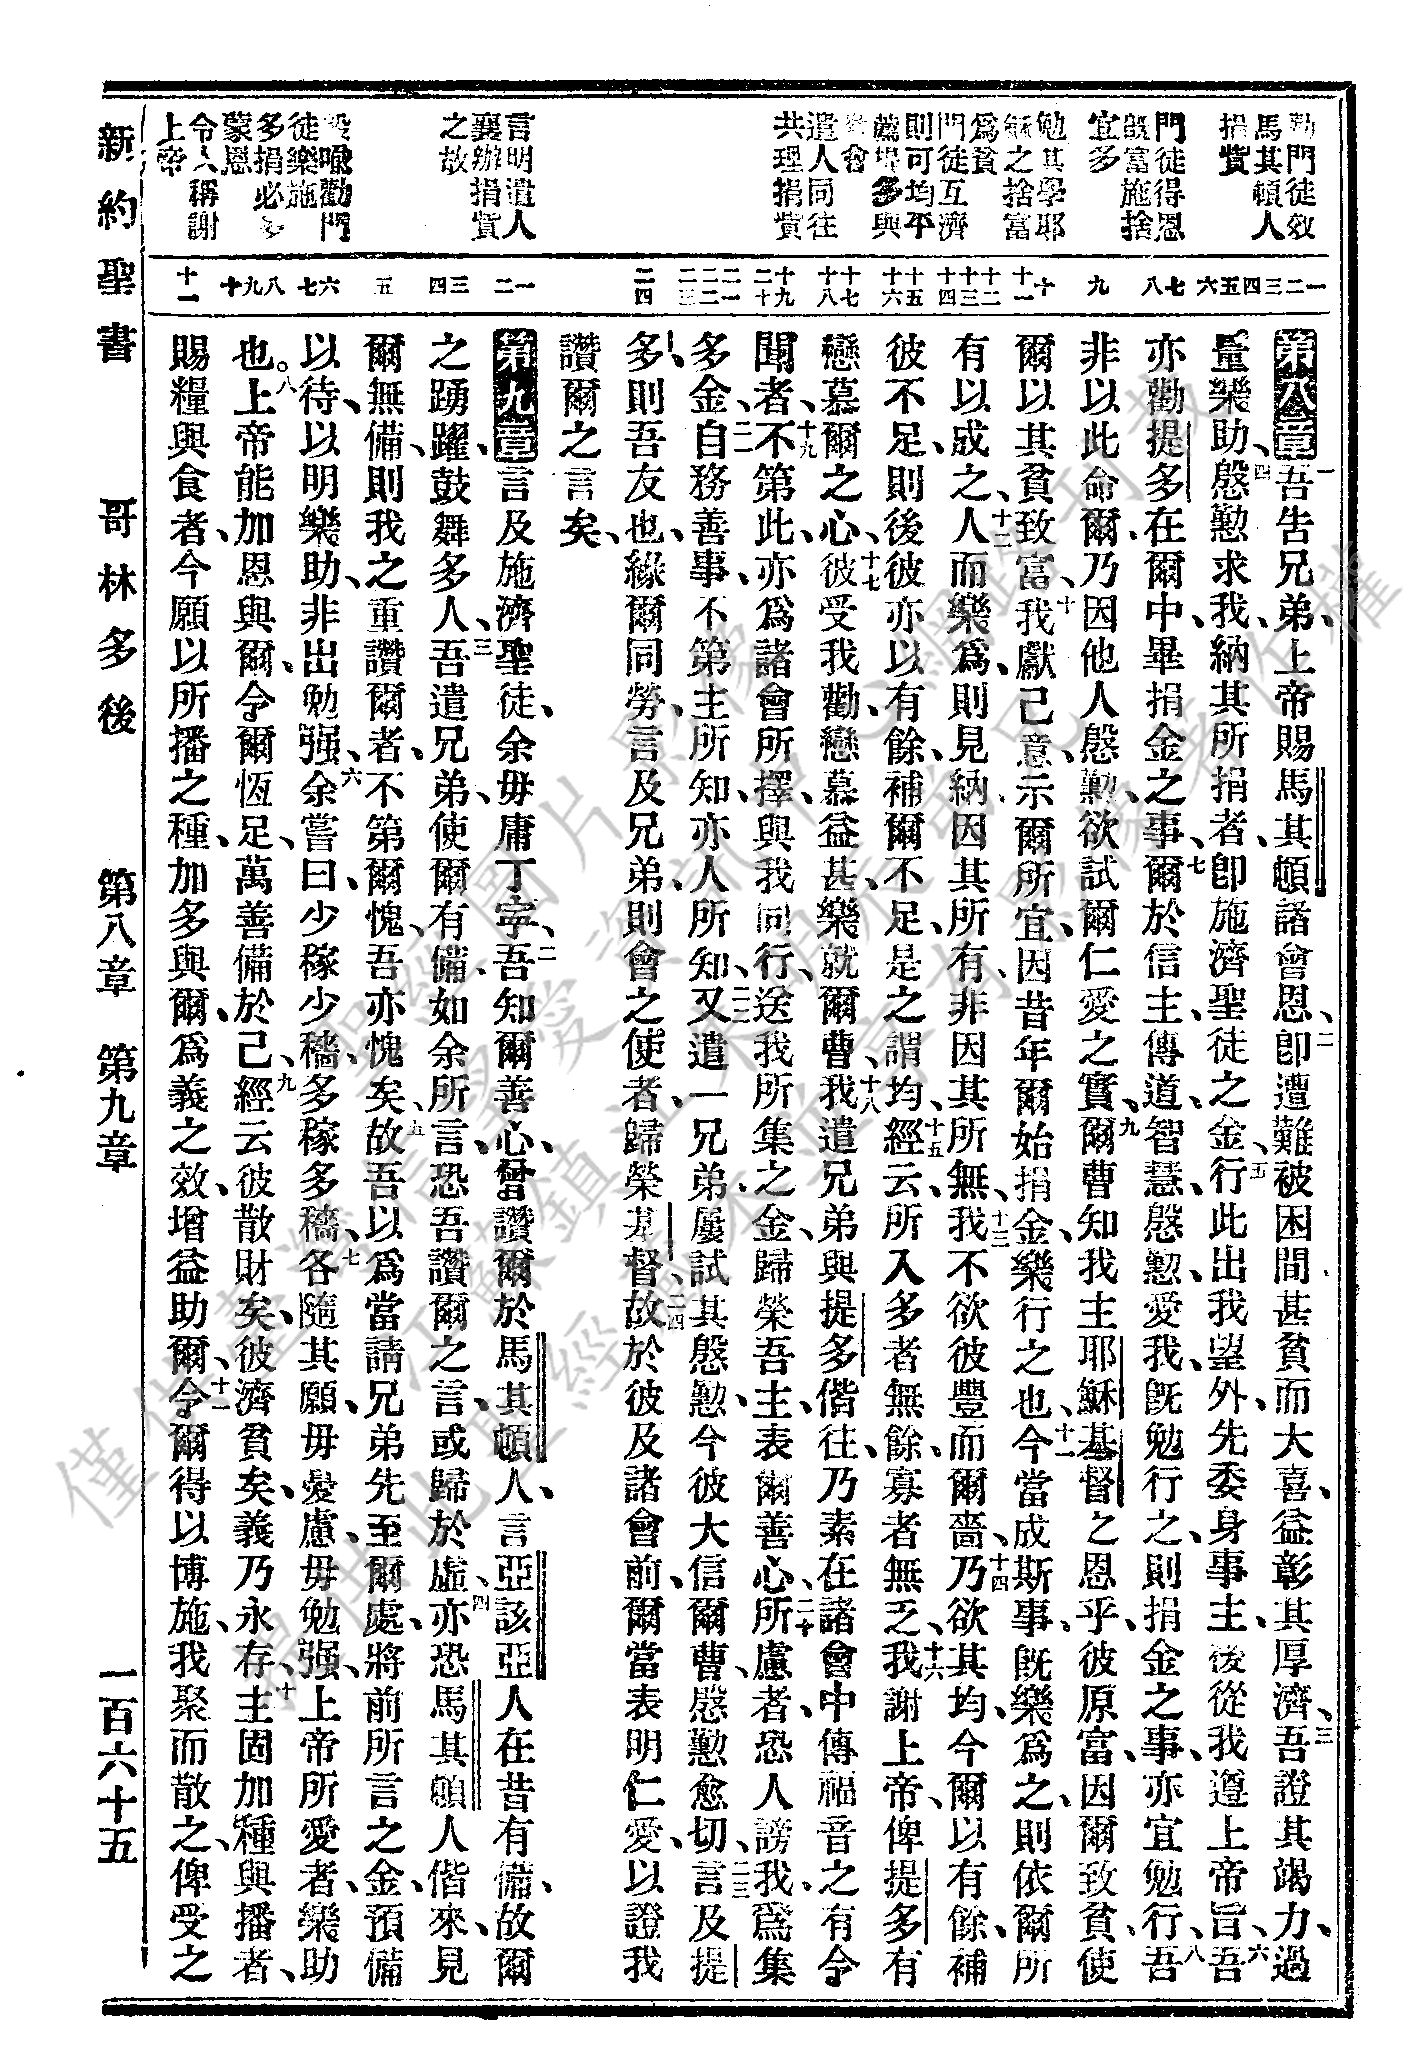 新約聖書 哥林多後 第八章 第九章 一百六十五
勸門徒效
馬其頓人
捐貲
門徒得恩
旣富施捨
宜多
勉其學耶
穌之捨富
爲貧
門徒互濟
則可均平
多與
遣人同往
共理捐貲
言明遣人
襄辦捐貲
之故
設喩勸門
徒樂施
多捐必多
蒙恩
令人稱謝
上帝
一二三四五六 七八 九 十十一 十二十三十四 十五十六 十七十八 十九二十 二一二二二三 二四 一二 三四 五 六七 八九十 十一
第八章一吾吿兄弟、上帝賜馬其頓諸會恩、二卽遭難被困間甚貧而大喜、益彰其厚濟、三吾證其竭力、過
量樂助、四慇懃求我、納其所捐者、卽施濟聖徒之金、五行此出我望外、先委身事主、後從我遵上帝旨、六吾
亦勸提多在爾中、畢捐金之事、七爾於信主、傳道、智慧、慇懃、愛我、旣勉行之、則捐金之事、亦宜勉行、八吾
非以此命爾、乃因他人慇懃、欲試爾仁愛之實、九爾曹知我主耶穌基督之恩乎、彼原富、因爾致貧、使
爾以其貧致富、十我獻己意、示爾所宜、因昔年爾始捐金、樂行之也、十一今當成斯事、旣樂爲之、則依爾所
有以成之、十二人而樂爲、則見納因其所有、非因其所無、十三我不欲彼豐而爾嗇、十四乃欲其均、今爾以有餘、補
彼不足、則後彼亦以有餘、補爾不足、是之謂均、十五經云、所入多者無餘、寡者無乏、十六我謝上帝、俾提多有
戀慕爾之心、十七彼受我勸、戀慕益甚、樂就爾曹、十八我遣兄弟與提多偕往、乃素在諸會中傳福音之有令
聞者、十九不第此、亦爲諸會所擇、與我同行、送我所集之金、歸榮吾主、表爾善心、二十所慮者、恐人謗我、爲集
多金、二一自務善事、不第主所知、亦人所知、二二又遣一兄弟、屢試其慇懃、今彼大信爾曹、慇懃愈切、二三言及提
多、則吾友也、緣爾同勞、言及兄弟、則會之使者、歸榮基督、二四故於彼及諸會前、爾當表明仁愛、以證我
讚爾之言矣、
第九章一言及施濟聖徒、余毋庸丁寧、二吾知爾善心、曾讚爾於馬其頓人、言亞該亞人在昔有備、故爾
之踴躍、鼓舞多人、三吾遣兄弟、使爾有備、如余所言、恐吾讚爾之言、或歸於虛、四亦恐馬其頓人偕來、見
爾無備、則我之重讚爾者、不第爾愧、吾亦愧矣、五故吾以爲當請兄弟先至爾處、將前所言之金、預備
以待、以明樂助、非出勉强、六余嘗曰、少稼少穡、多稼多穡、七各隨其願、毋憂慮、毋勉强、上帝所愛者、樂助
也。八上帝能加恩與爾、令爾恆足、萬善備於己、九經云彼散財矣、彼濟貧矣、義乃永存、十主固加種與播者、
賜糧與食者、今願以所播之種、加多與爾、爲義之效、增益助爾、十一令爾得以博施、我聚而散之、俾受之